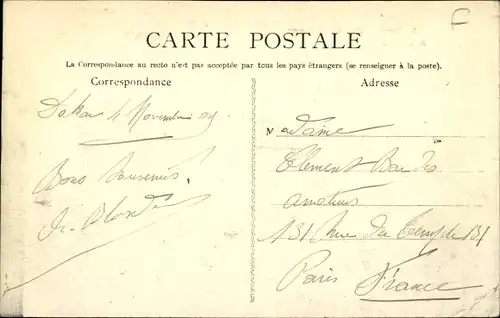 CARTE POSTALE
La Correspondance au recto n'est pas acceptée par tous les pays étrangers (se renseigner à la poste).
Correspondance
Adresse
Dakar 4 Novembre
Bons Souvenirs!
Madame
Clément
131 Rue du Temple 131
Paris France